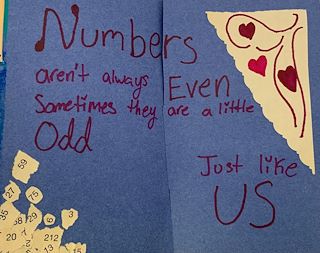 Numbers
aren't always Even
Sometimes they are a little
Odd
Just like
US
59
27
75
35
38
29
6
3
20
7
212
13